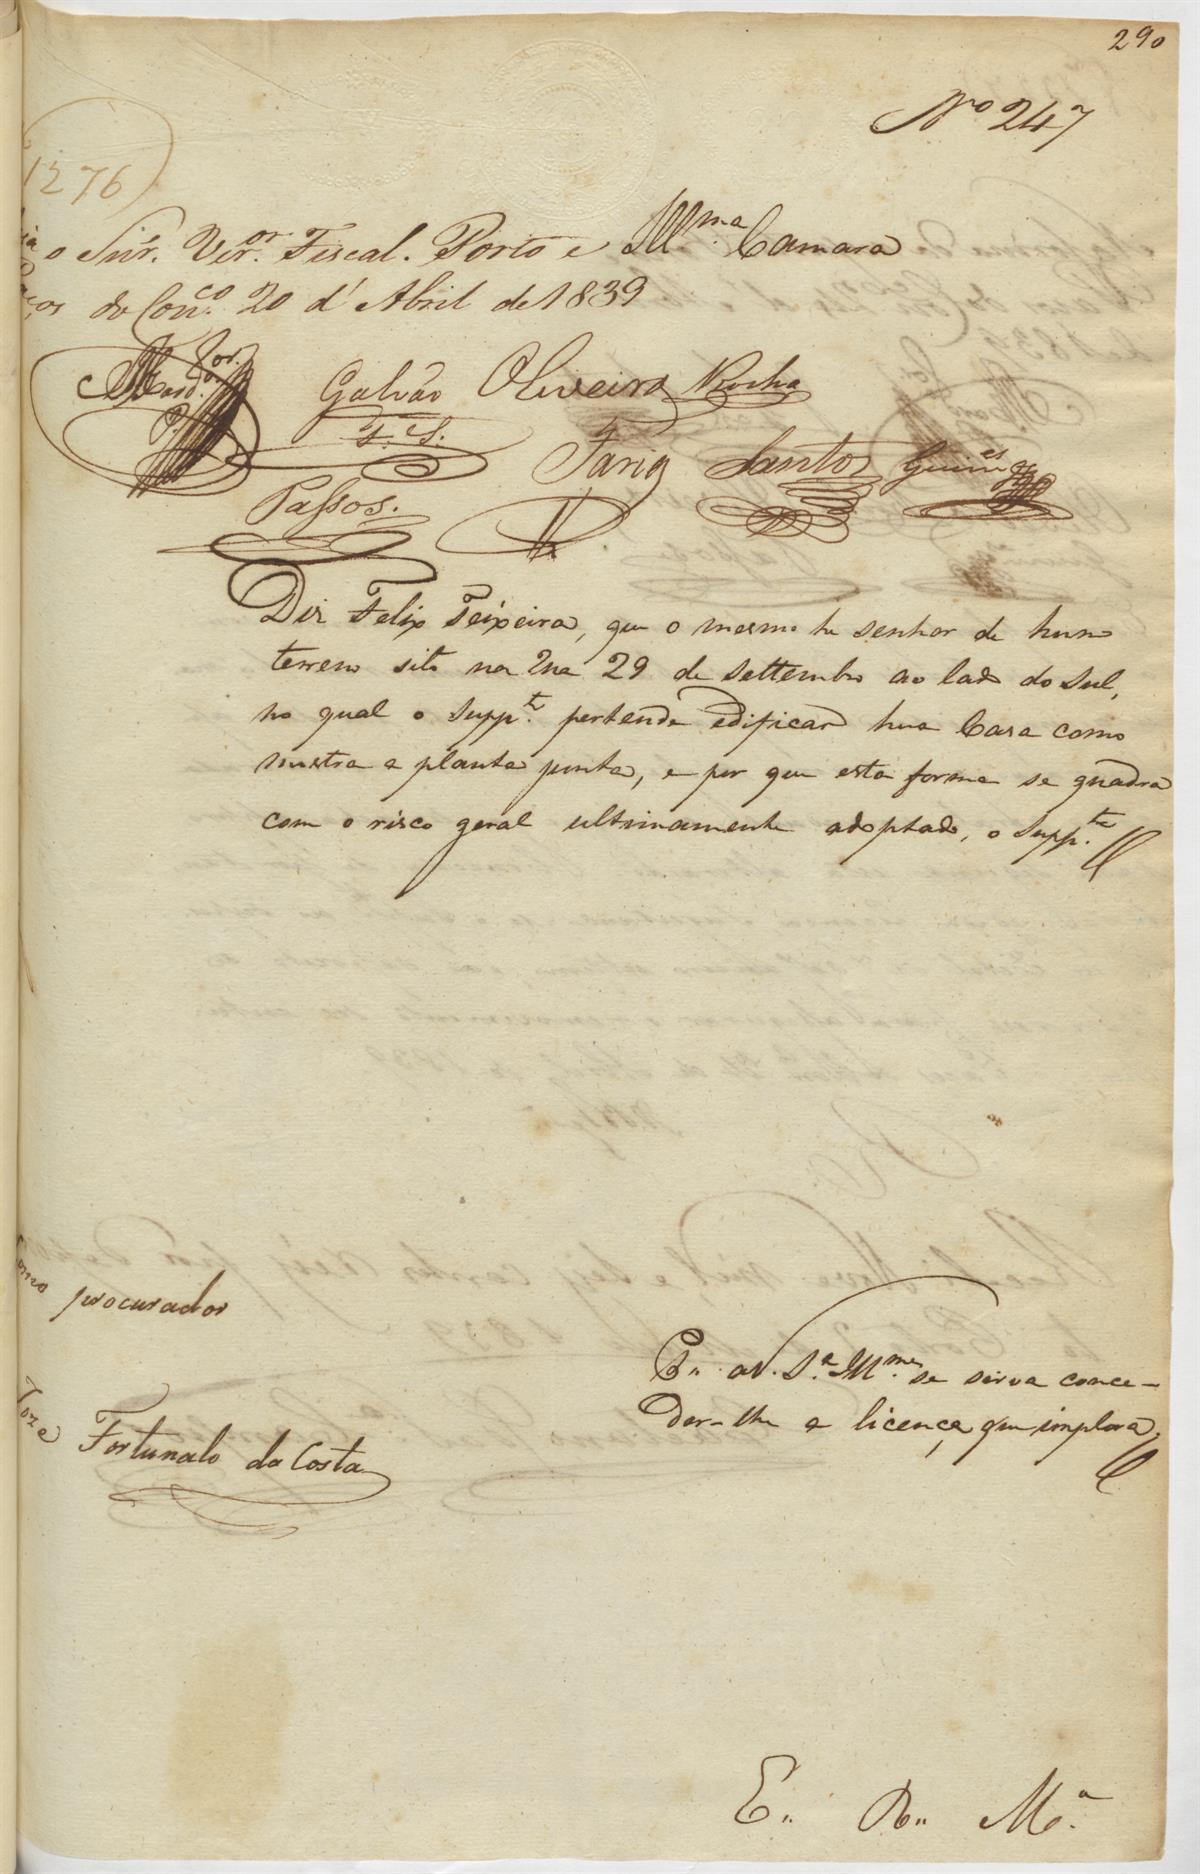 290
Nº 247
1276
o Snr. Verºr. Fiscal. Porto e Illmª Camara
do Concº. 20 d' Abril de 1839
Galvão Oliveira Rocha
F. S.
Faria Santos Guimes
Passos.
Diz Felix Teixeira, que o mesmo he senhor de hum
terreno sito na Rua 29 de Settembro ao lado do Sul,
no qual o Suppte. pertende edificar hua Casa como
mostra a planta junta, e por que esta forma se quadra
com o risco geral ultimamente adoptado, o Suppte.
Como procurador
P. a V. Sª Illmª se sirva conce-
der-lhe a licença que implora,
Joze
Fortunato da Costa
E. R. Mª.